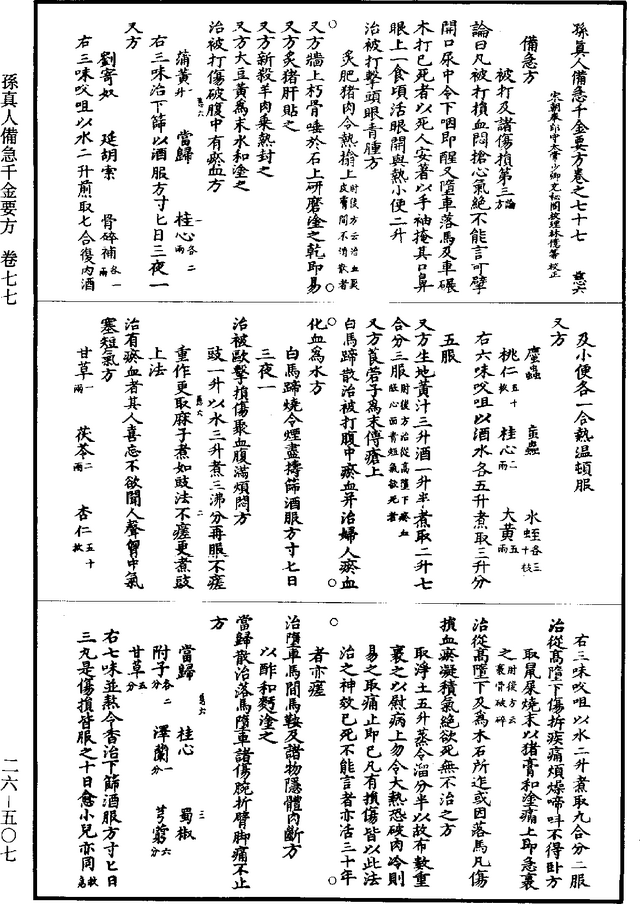 孫真人備急千金要方卷之七十七
宋朝奉郎守太常少卿充秘閣校理林億等校正
備急方
被打及諸傷損第三論方
論曰凡被打損血悶搶心氣絕不能言可擘
開口尿中令下咽即醒又墮車落馬及車碾
木打已死者以死人安著以手袖掩其口鼻
眼上一食頃活眼開與熱小便二升
治被打擊頭眼青腫方
炙肥豬肉令熱搨上肘後方云治血聚皮膚間不消散者
又方墻上朽骨唾於石上研磨塗之乾即易
又方炙猪肝貼之
又方新殺羊肉乘熱封之
又方大豆黃為末水和塗之
治被打傷破腹中有瘀血方
蒲黃一升 當歸 桂心各二兩
右三味治下篩以酒服方寸匕日三夜一
又方
劉寄奴 延胡索 骨碎補各一兩
右三味㕮咀以水二升煎取七合復內酒
及小便各一合熱溫頓服
又方
䗪蟲 䖟蟲 水蛭各三十枚
桃仁五十枚 桂心二兩 大黃五兩
右六味㕮咀以酒水各五升煮取三升分
五服
又方生地黃汁三升酒一升半煮取二升七
合分三服肘後方治從高墮下瘀血脹心面青短氣欲死者
又方莨菪子為末傅瘡上
白馬蹄散治被打腹中瘀血并治婦人瘀血
化血為水方
白馬蹄燒令煙盡擣篩酒服方寸匕日
三夜一
治被毆擊損傷聚血腹滿煩悶方
豉一升以水三升煮三沸分再服不瘥
重作更取麻子煮如豉法不瘥更煮豉
上法
治有瘀血者其人喜忘不欲聞人聲胷中氣
塞短氣方
甘草一兩 茯苓二兩 杏仁五十枚
右三味㕮咀以水二升煮取九合分二服
治從高墮下傷折疾痛煩燥啼呌不得卧方
取鼠屎燒末以猪膏和塗痛上即急裹
之肘後方云裹骨破碎
治從高墮下及為木石所迮或因落馬凡傷
損血瘀凝積氣絕欲死無不治之方
取淨土五升蒸令溜分半以故布數重
裹之以慰病上勿令大熱恐破肉冷則
易之取痛止即已凡有損傷皆以此法
治之神效已死不能言者亦活三十年
者亦瘥
治墮車馬間馬鞍及諸物隱體肉斷方
以酢和麪塗之
當歸散治落馬墮車諸傷腕折臂脚痛不止
方
當歸 桂心 蜀椒
附子各二分 澤蘭一分 芎藭六分
甘草五分
右七味並熬令香治下篩酒服方寸匕日
三凡是傷損皆服之十日愈小兒亦同救急
孫真人備急千金要方 卷七七
二六－五〇七